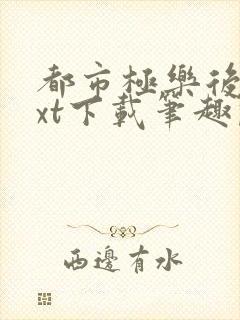 都市極樂後
xt下載筆趣
西邊有水